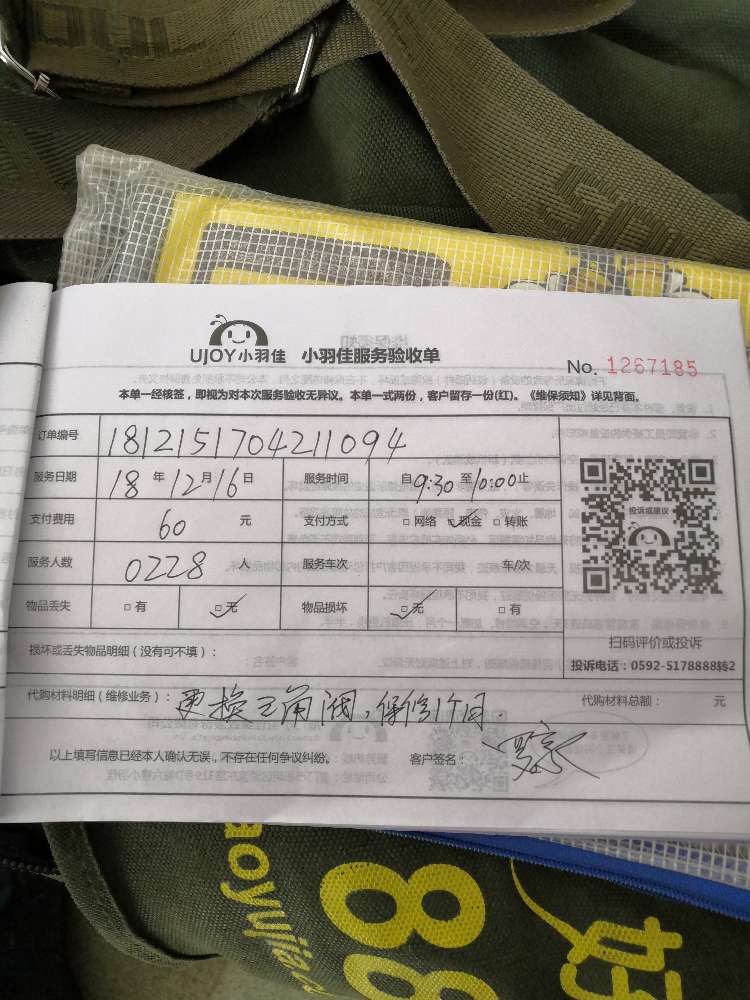 UJOY小羽佳 小羽佳服务验收单
No. 1267185
本单一经核签，即视为对本次服务验收无异议。本单一式两份，客户留存一份(红)。《维保须知》详见背面。
订单编号 1812151704211094
服务日期 18年12月16日 服务时间 自9:30至10:00止
支付费用 60 元 支付方式 □网络 ☑现金 □转账
服务人数 0228 人 服务车次 车/次
物品丢失 □有 ☑无 物品损坏 ☑无 □有
投诉或建议
扫码评价或投诉
投诉电话：0592-5178888转2
损坏或丢失物品明细（没有可不填）：
代购材料明细（维修业务）：更换三角阀，保修1个月. 代购材料总额： 元
以上填写信息已经本人确认无误，不存在任何争议纠纷。 客户签名：
aoyujia
88
好